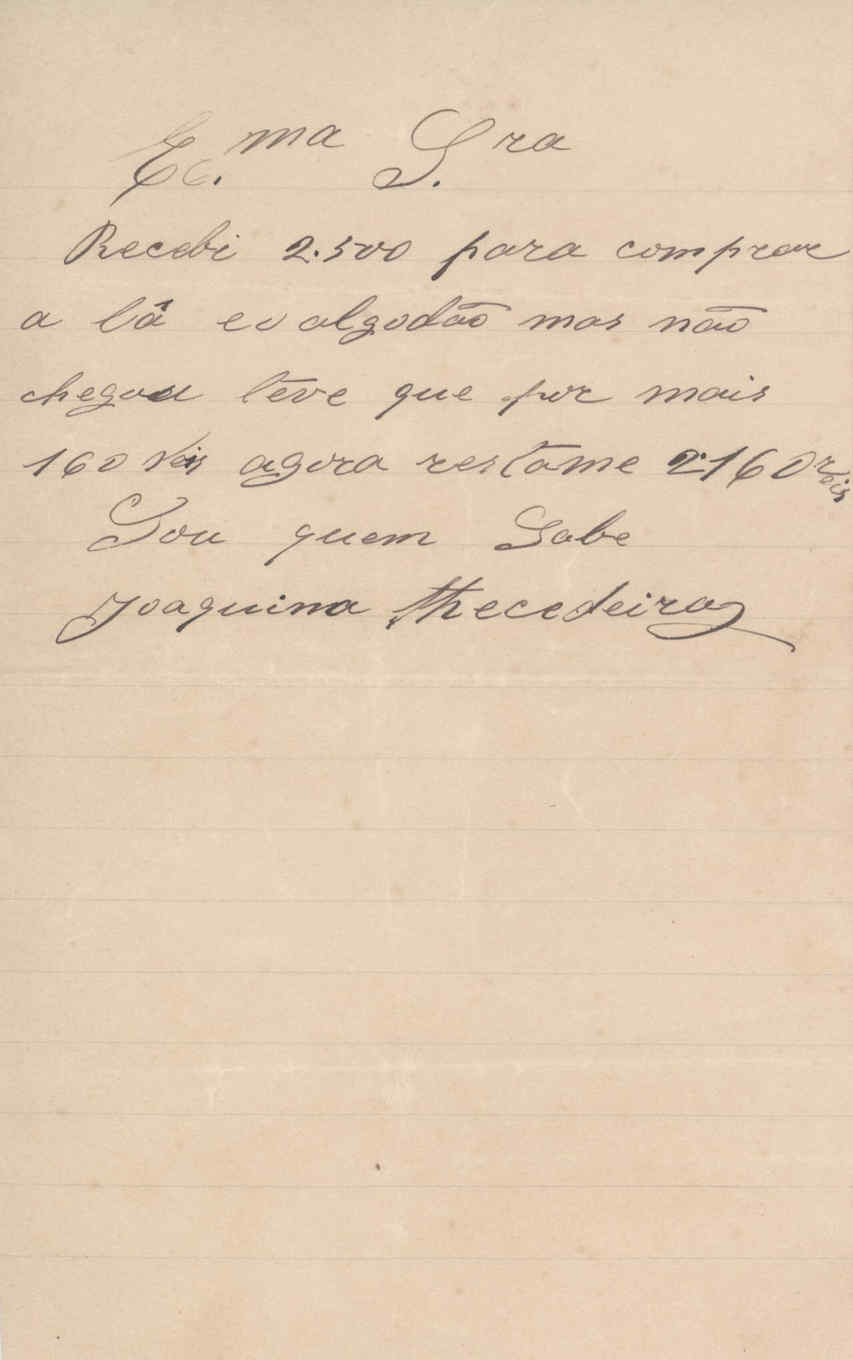 Ec.ma S.ra
Recebi 2.500 para comprar
a lã eo algodão mas não
chegou teve que por mais
160 reis agora restame 2160 reis
Sou quem Sabe
Joaquina Thecedeira